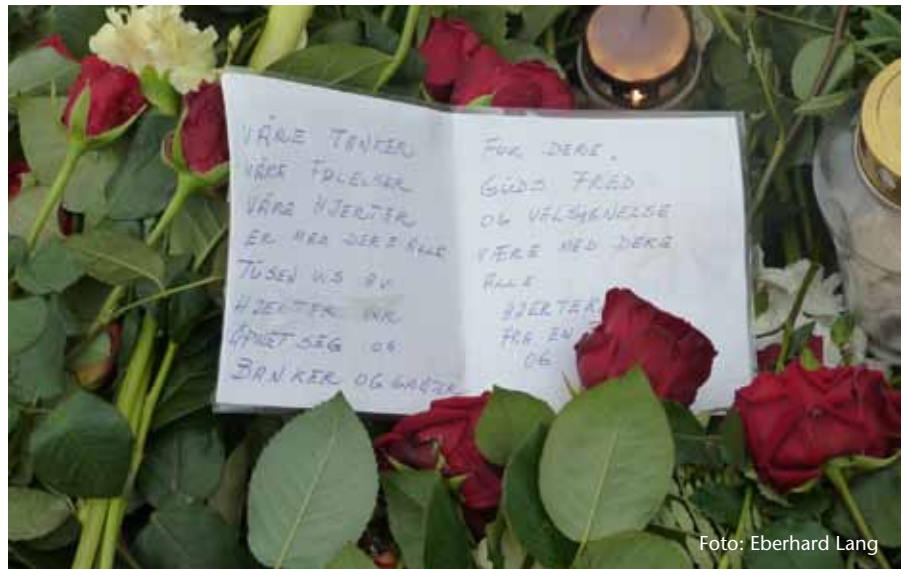 VÅRE TANKER
VÅRE FØLELSER
VÅRE HJERTER
ER MED DERE ALLE
TUSEN VIS AV
HJERTER HAR
ÅPNET SEG OG
BANKER OG GRÅTER
FOR DERE.
GUDS FRED
OG VELSIGNELSE
VÆRE MED DERE
ALLE
HJERTER
FRA EN
OG
Foto: Eberhard Lang